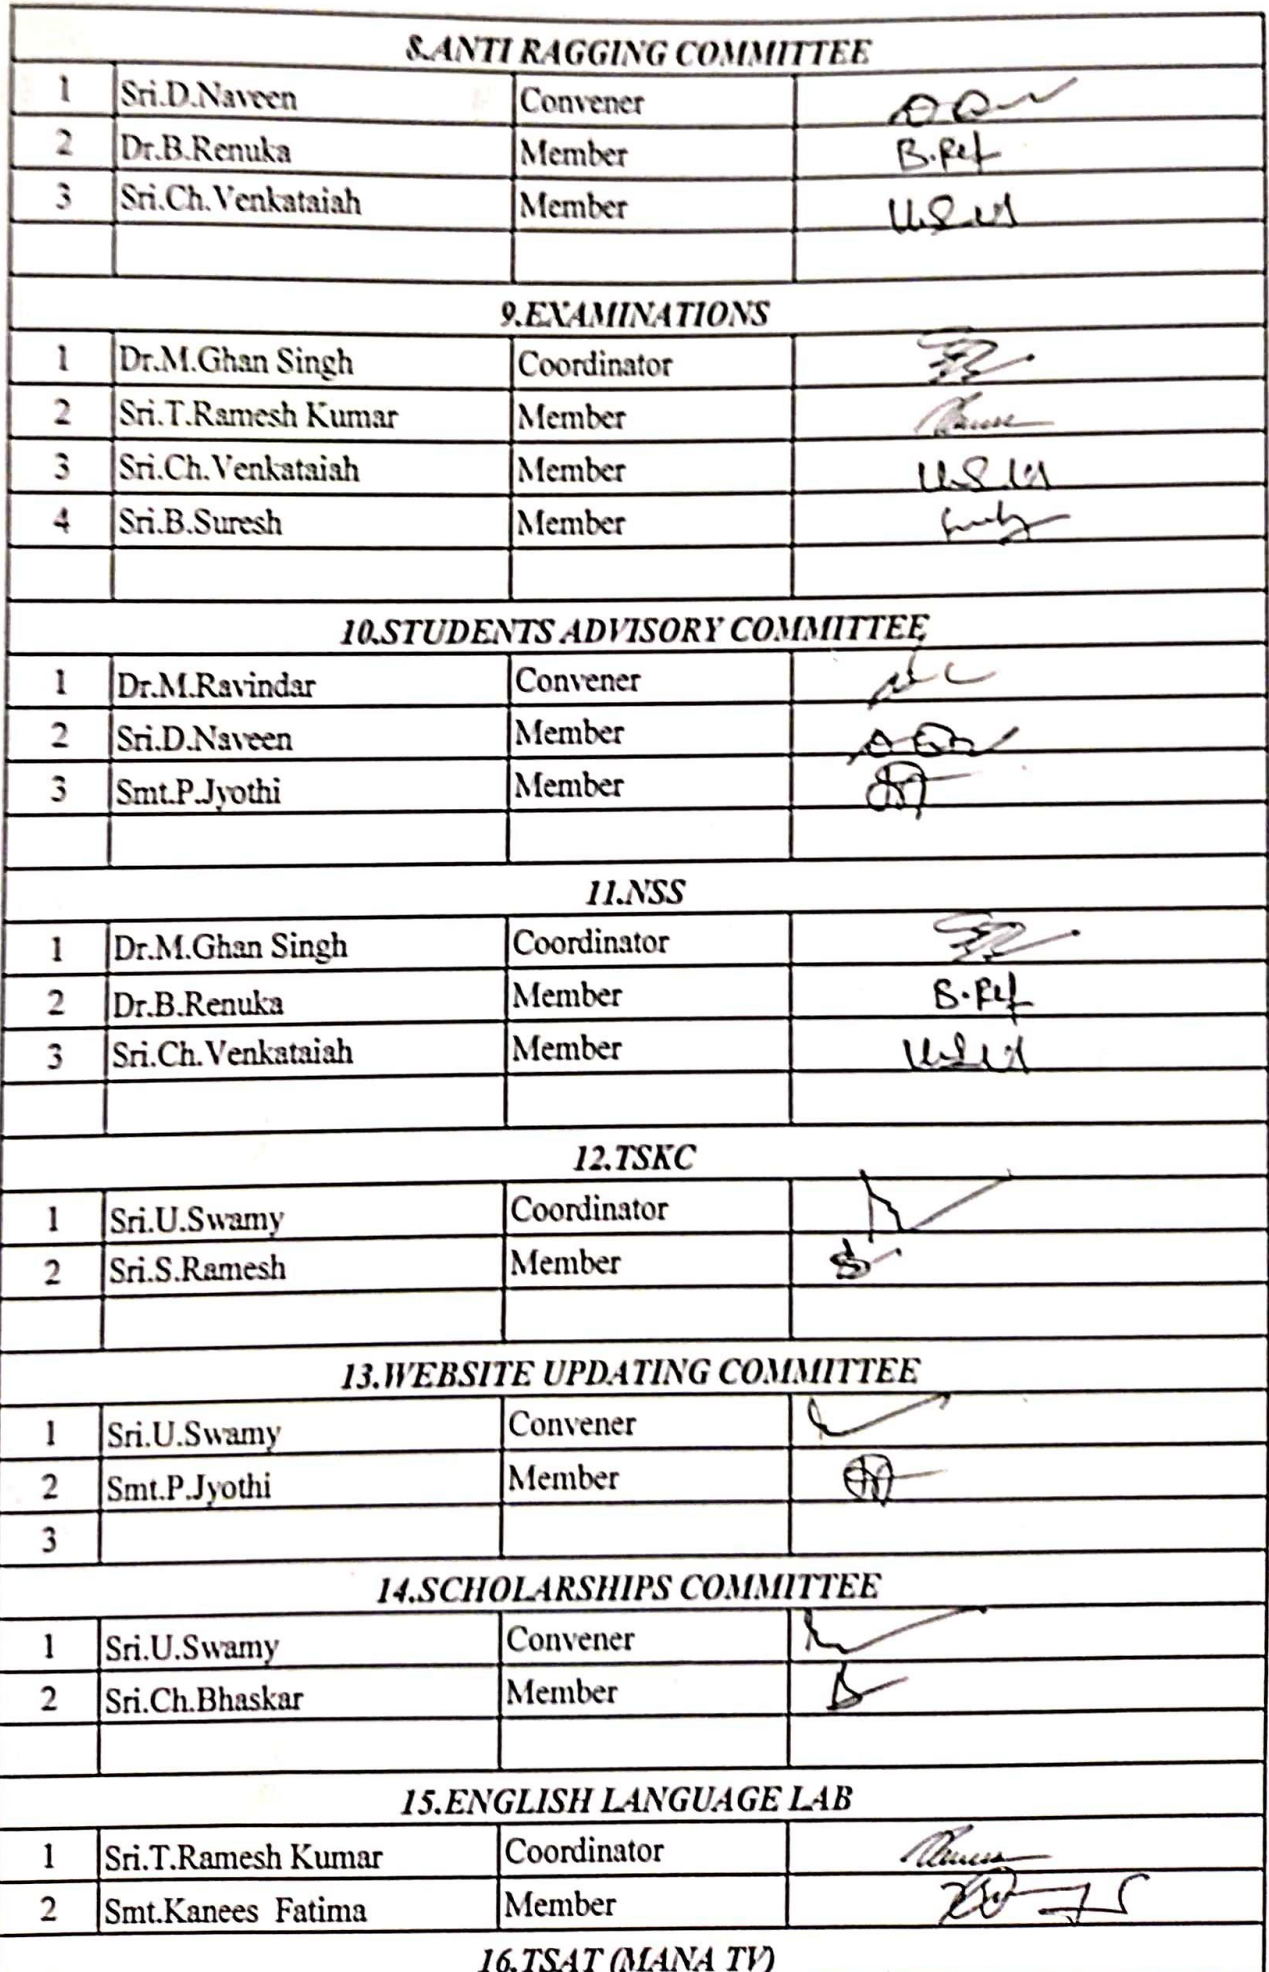 8.ANTI RAGGING COMMITTEE
1 Sri.D.Naveen Convener
2 Dr.B.Renuka Member B.Ref
3 Sri.Ch.Venkataiah Member
9.EXAMINATIONS
1 Dr.M.Ghan Singh Coordinator
2 Sri.T.Ramesh Kumar Member
3 Sri.Ch.Venkataiah Member
4 Sri.B.Suresh Member
10.STUDENTS ADVISORY COMMITTEE
1 Dr.M.Ravindar Convener
2 Sri.D.Naveen Member
3 Smt.P.Jyothi Member
11.NSS
1 Dr.M.Ghan Singh Coordinator
2 Dr.B.Renuka Member B.Ref
3 Sri.Ch.Venkataiah Member
12.TSKC
1 Sri.U.Swamy Coordinator
2 Sri.S.Ramesh Member
13.WEBSITE UPDATING COMMITTEE
1 Sri.U.Swamy Convener
2 Smt.P.Jyothi Member
3
14.SCHOLARSHIPS COMMITTEE
1 Sri.U.Swamy Convener
2 Sri.Ch.Bhaskar Member
15.ENGLISH LANGUAGE LAB
1 Sri.T.Ramesh Kumar Coordinator
2 Smt.Kanees Fatima Member
16.TSAT (MANA TV)